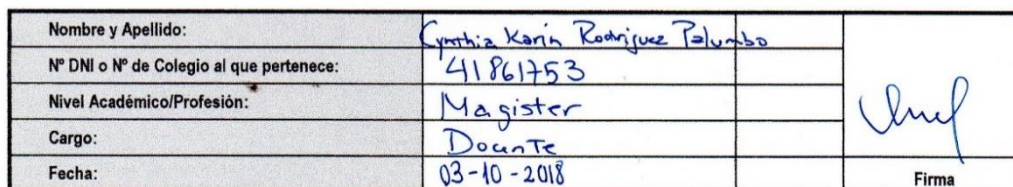 Nombre y Apellido: Cynthia Karin Rodriguez Palumbo
Nº DNI o Nº de Colegio al que pertenece: 41861753
Nivel Académico/Profesión: Magister
Cargo: Docente
Fecha: 03-10-2018
Firma